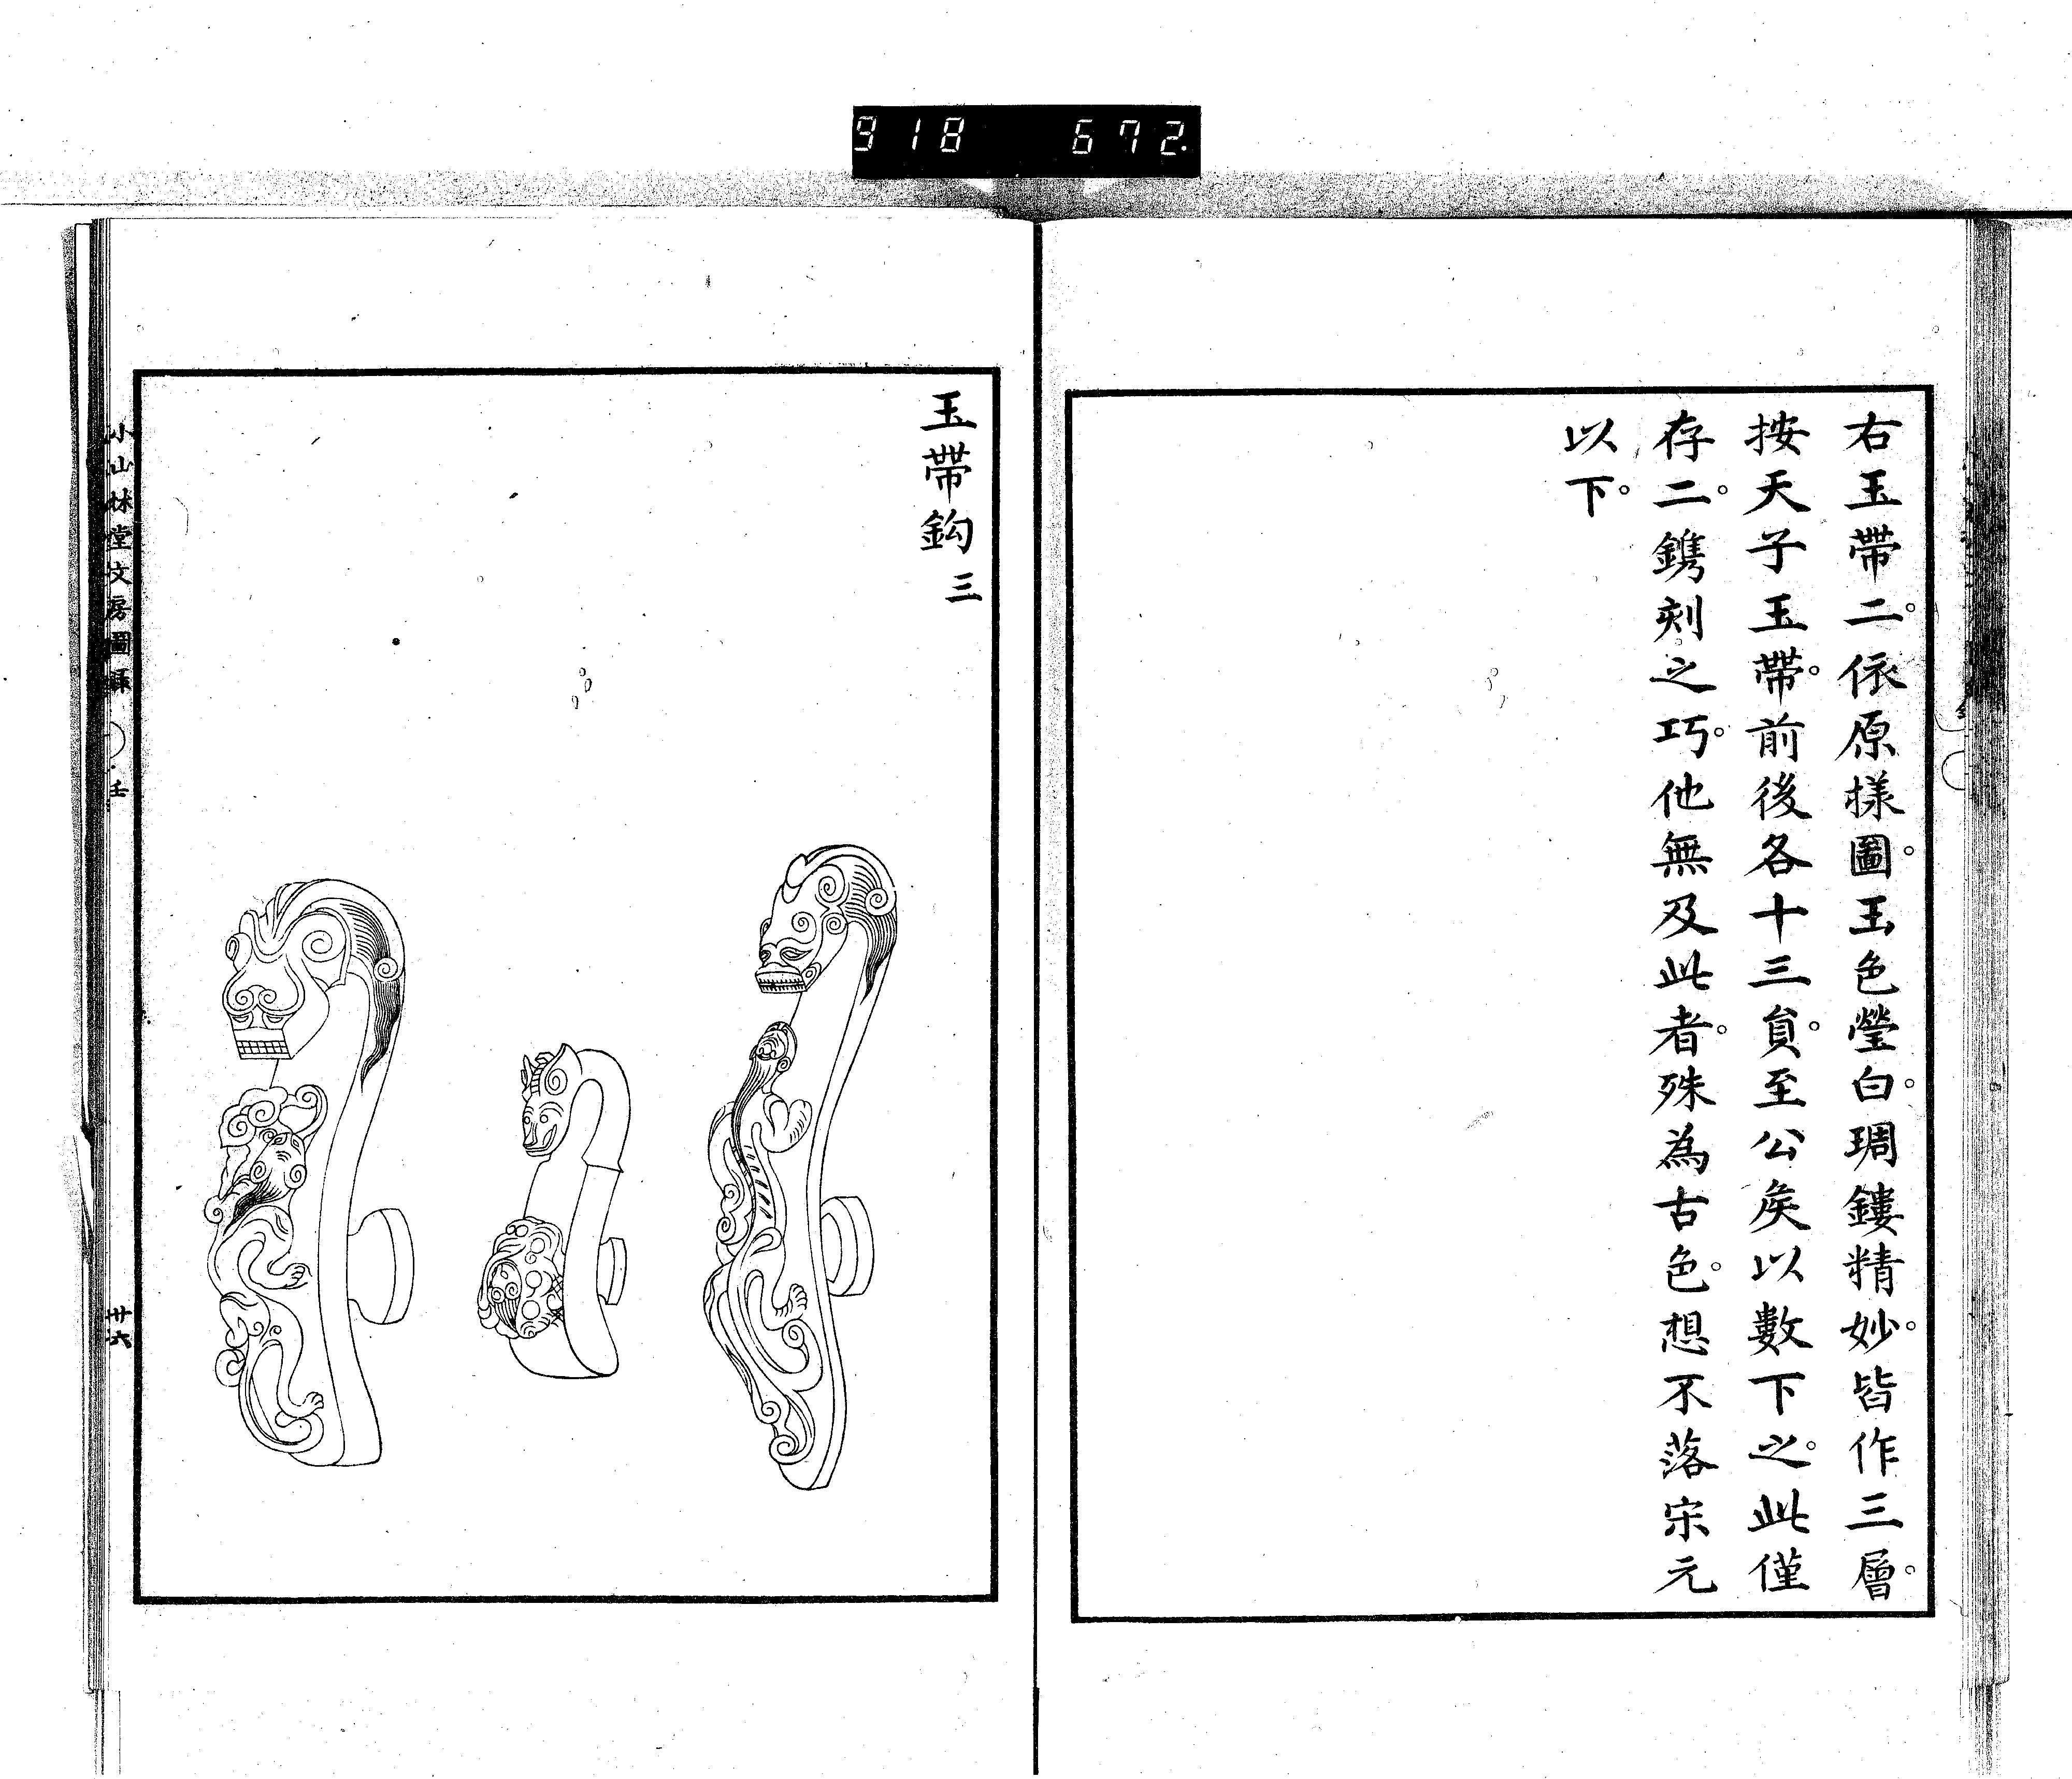 918 672.
右玉帶二。依原樣圖。玉色瑩白。琱鏤精妙。皆作三層。
按天子玉帶。前後各十三負。至公矦以數下之。此僅
存二。鐫刻之巧。他無及此者。殊為古色。想不落宋元
以下。
玉帶鈎 三
小山林堂文房圖錄 壬
卅六